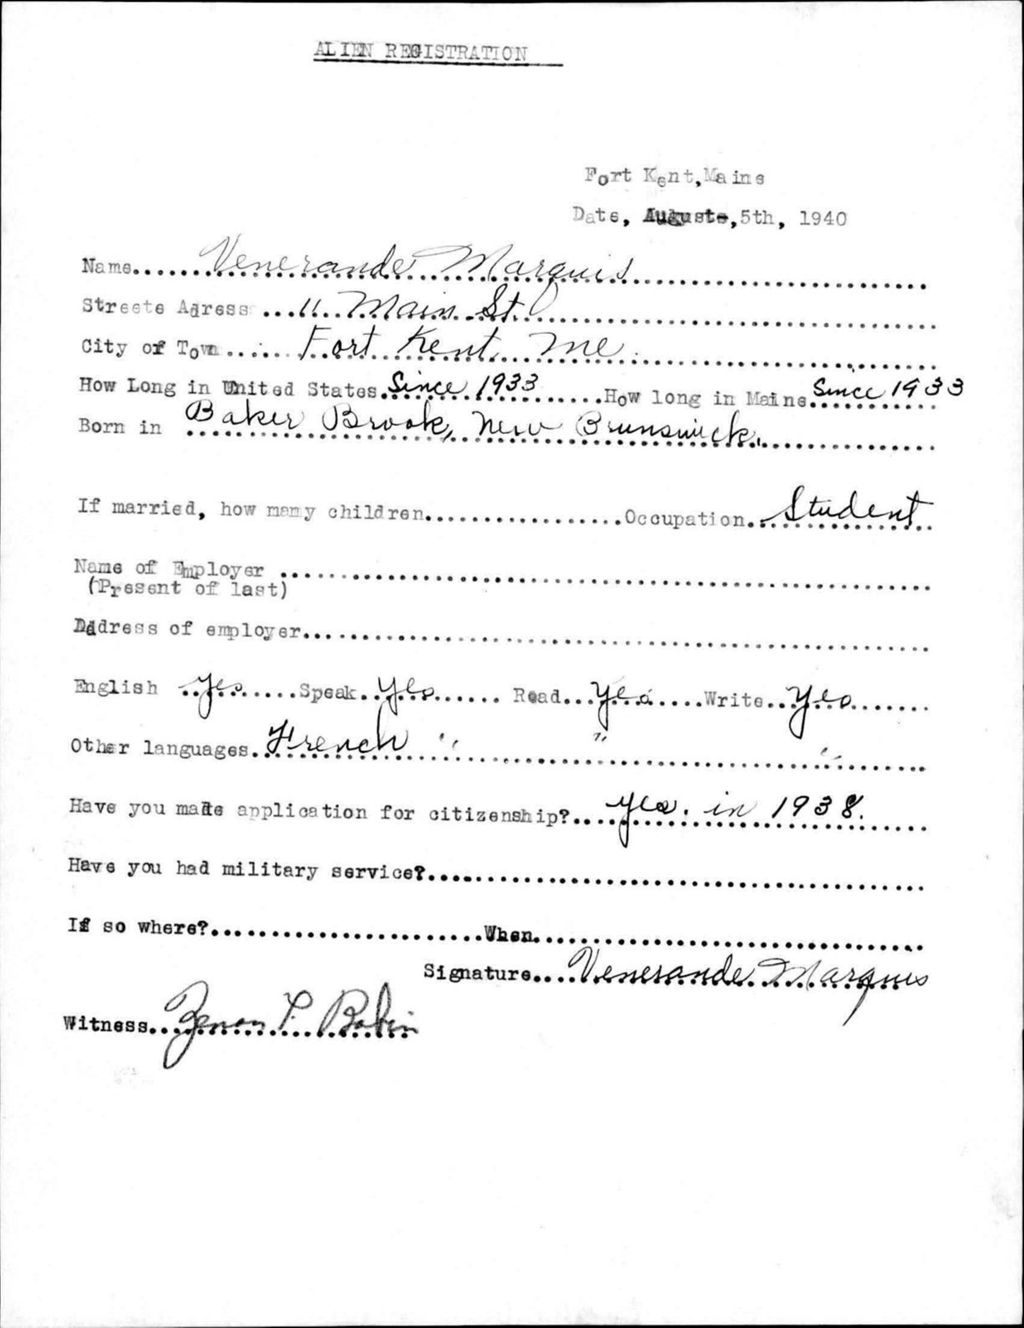 ALIEN REGISTRATION
Fort Kent, Maine
Date, Auguste, 5th, 1940
Name......Venerande Marquis..............................
Streete Adress ...11 Main St...............................
City of Town .......Fort Kent, Me.........................
How Long in United States.Since 1933.........How long in Maine.Since 1933
Born in Baker Brook, New Brunswick.
If married, how many children..................Occupation...Student
Name of Employer ..................................................
(Present of last)
Address of employer..................................................
English ..Yes......Speak..Yes....... Read...Yes.....Write..Yes.......
Other languages.French " " "
Have you made application for citizenship?...yes. in 1938.
Have you had military service?........................................
If so where?........................When..............................
Signature...Venerande Marquis
Witness...Zenon P. Babin